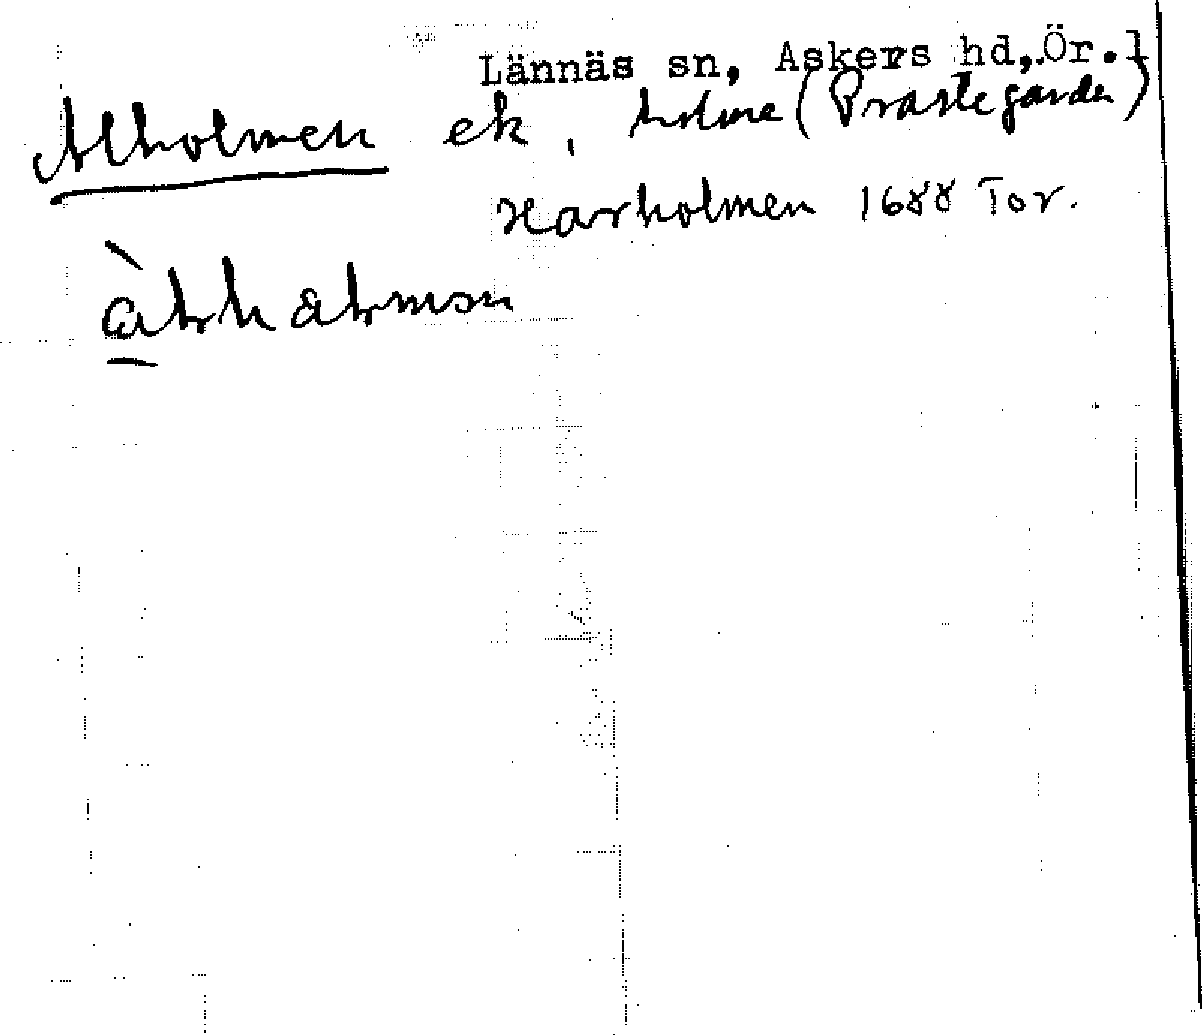 Lännäs sn, Askers hd, Ör. l
Alholmen ek, holme (Prästegården)
Harholmen 1688 Tor.